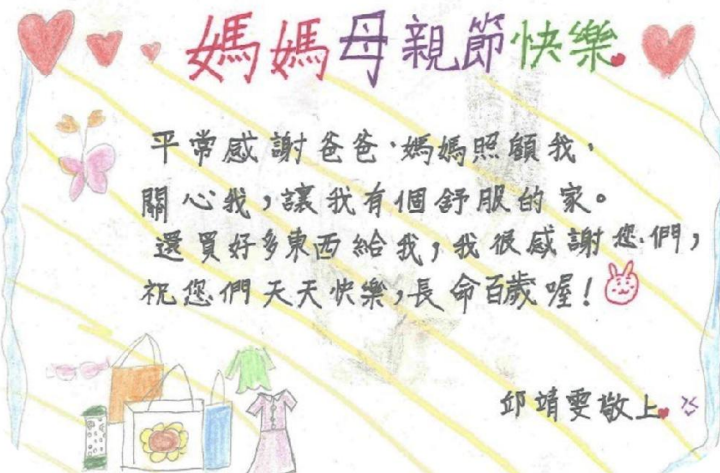 媽媽母親節快樂
平常感謝爸爸、媽媽照顧我、
關心我，讓我有個舒服的家。
還買好多東西給我，我很感謝您們，
祝您們天天快樂，長命百歲喔！
邱靖雯敬上